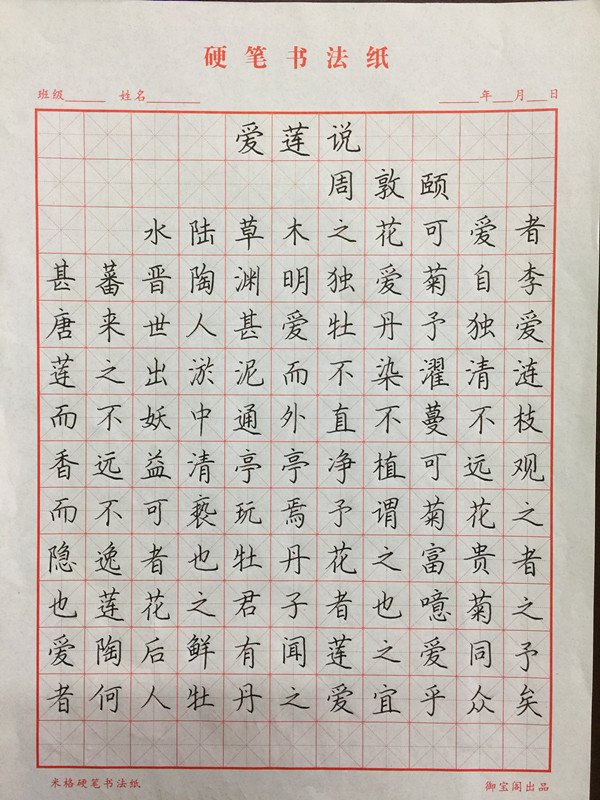 硬笔书法纸
班级______ 姓名________ ______年___月___日
爱莲说
周敦颐
水陆草木之花可爱者
甚蕃晋陶渊明独爱菊自李
唐来世人甚爱牡丹予独爱
莲之出淤泥而不染濯清涟
而不妖中通外直不蔓不枝
香远益清亭亭净植可远观
而不可亵玩焉予谓菊花之
隐逸者也牡丹花之富贵者
也莲花之君子者也噫菊之
爱陶后鲜有闻莲之爱同予
者何人牡丹之爱宜乎众矣
米格硬笔书法纸 御宝阁出品